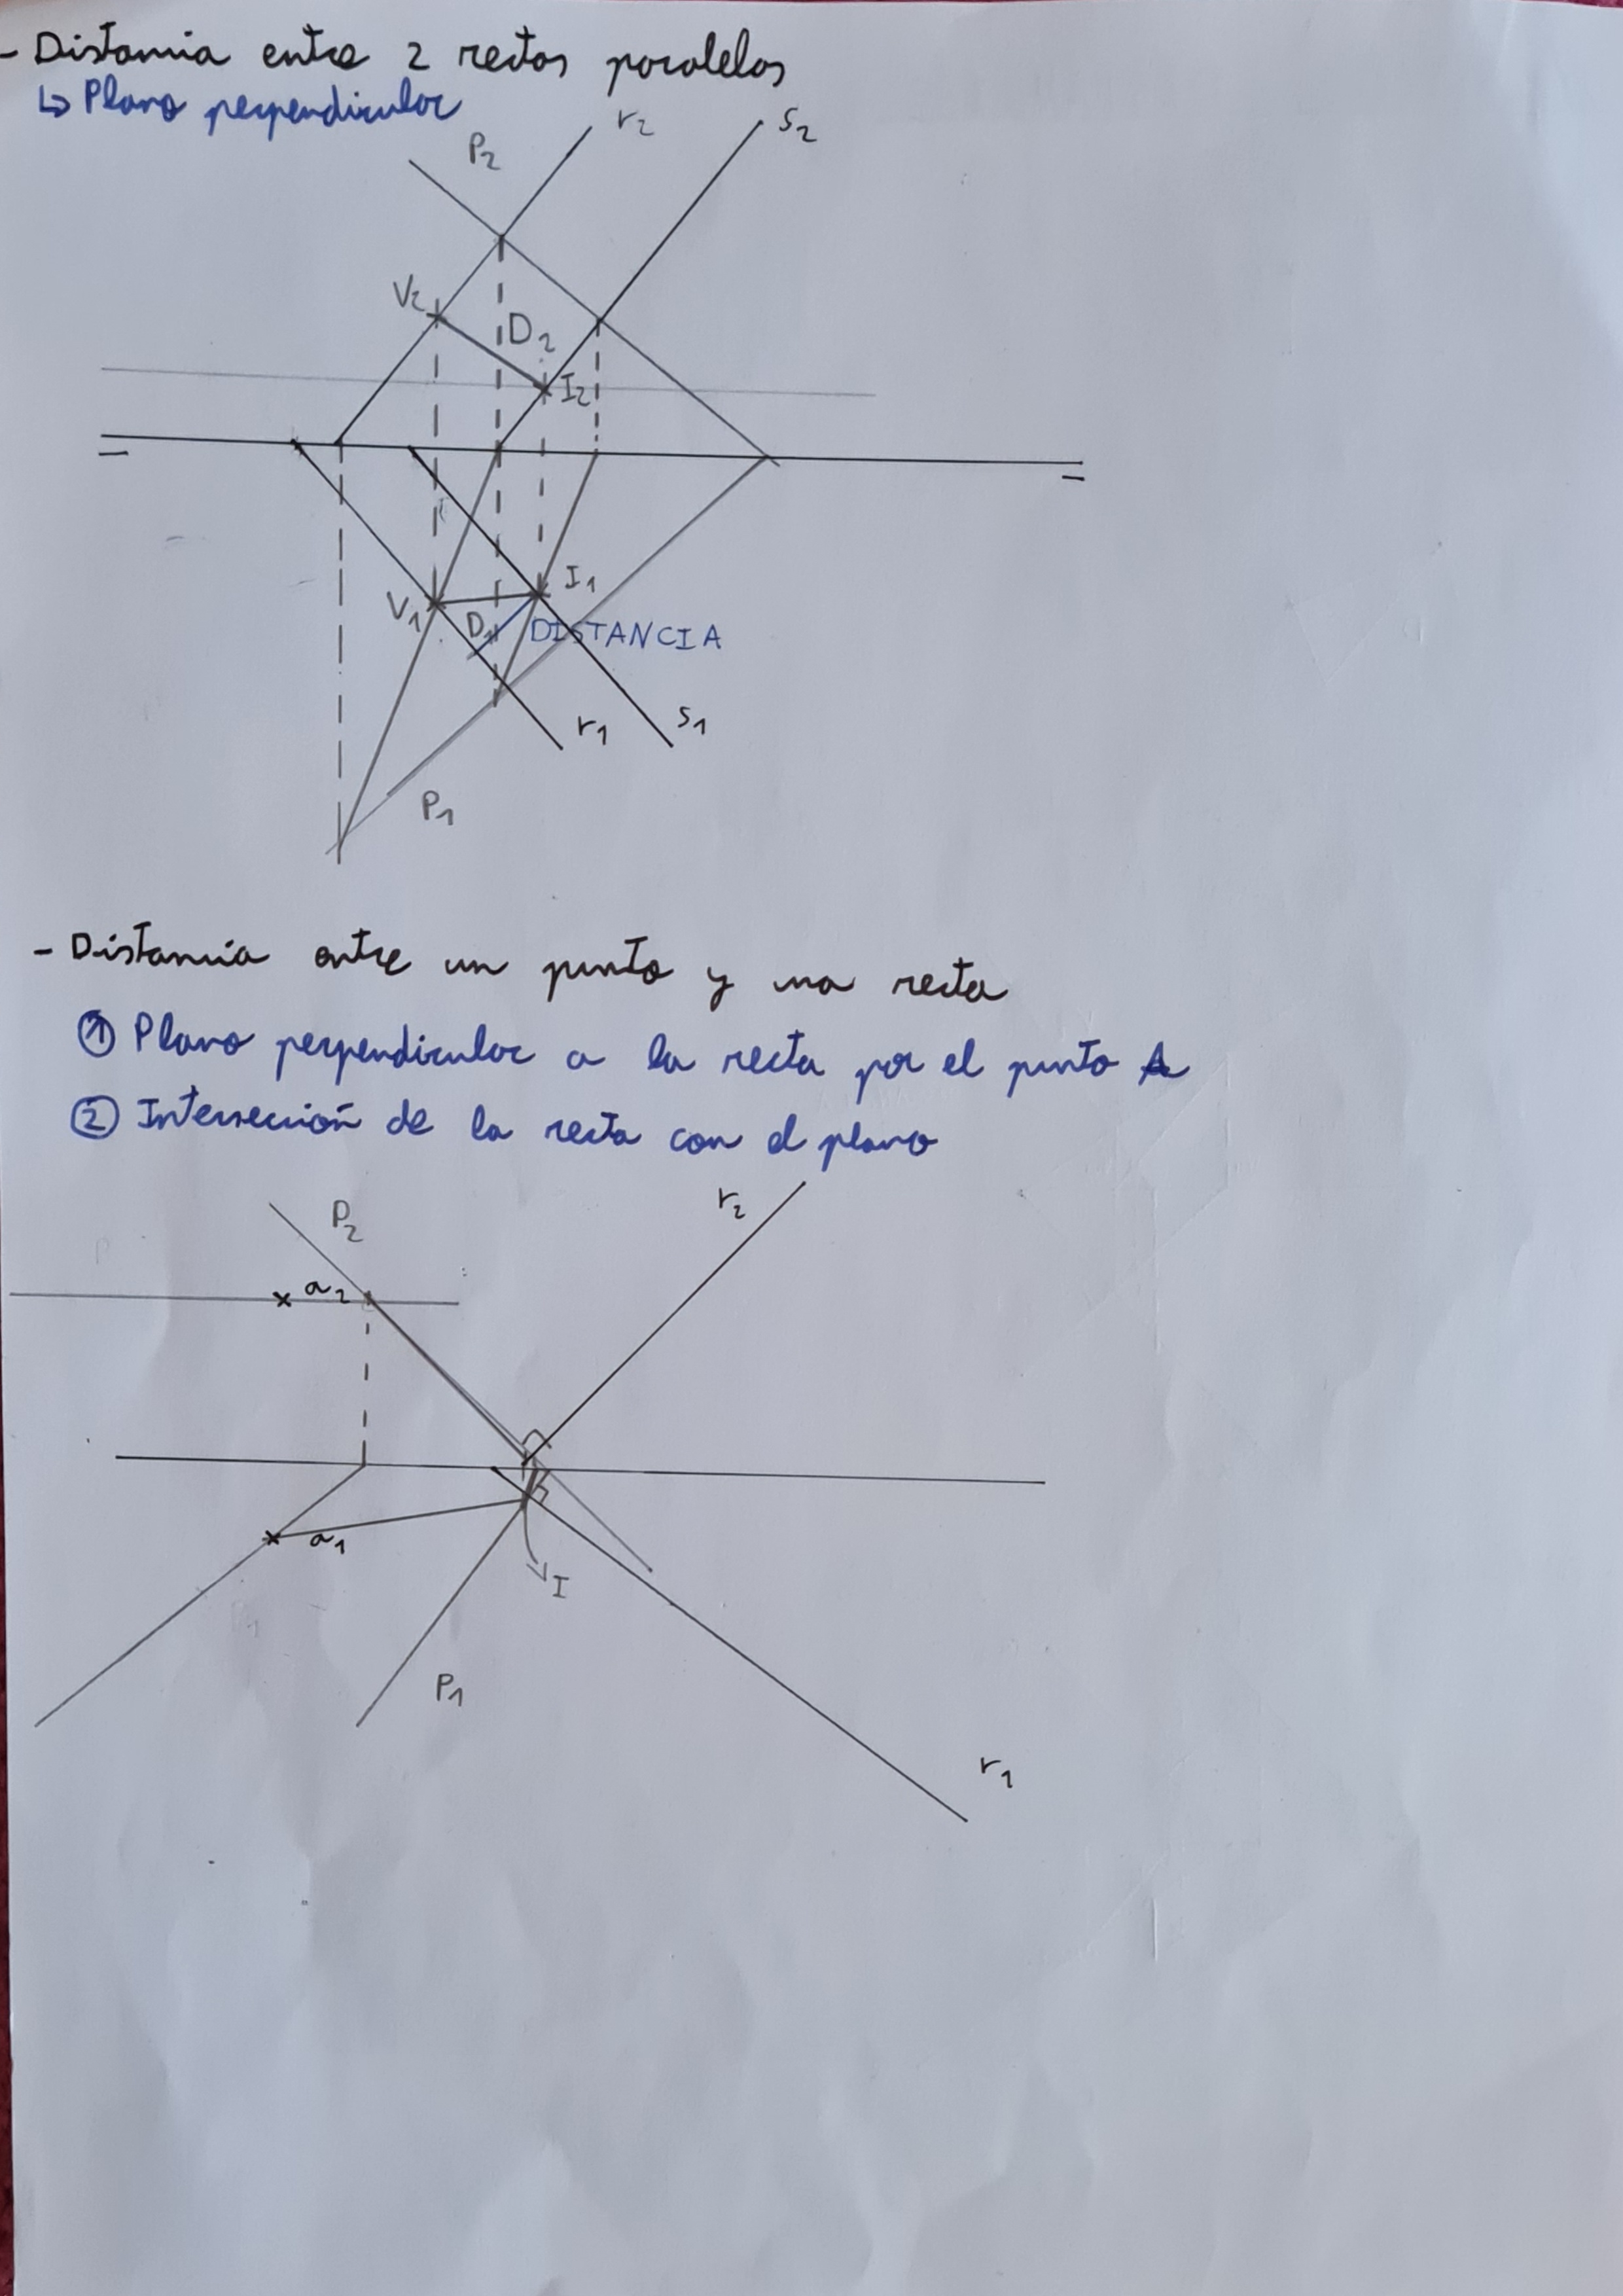 - Distancia entre 2 rectas paralelas
↳ Plano perpendicular
r₂
s₂
P₂
V₂
D₂
I₂
I₁
V₁
D₁
DISTANCIA
s₁
r₁
P₁
- Distancia entre un punto y una recta
① Plano perpendicular a la recta por el punto A
② Intersección de la recta con el plano
r₂
P₂
a₂
a₁
I
P₁
r₁